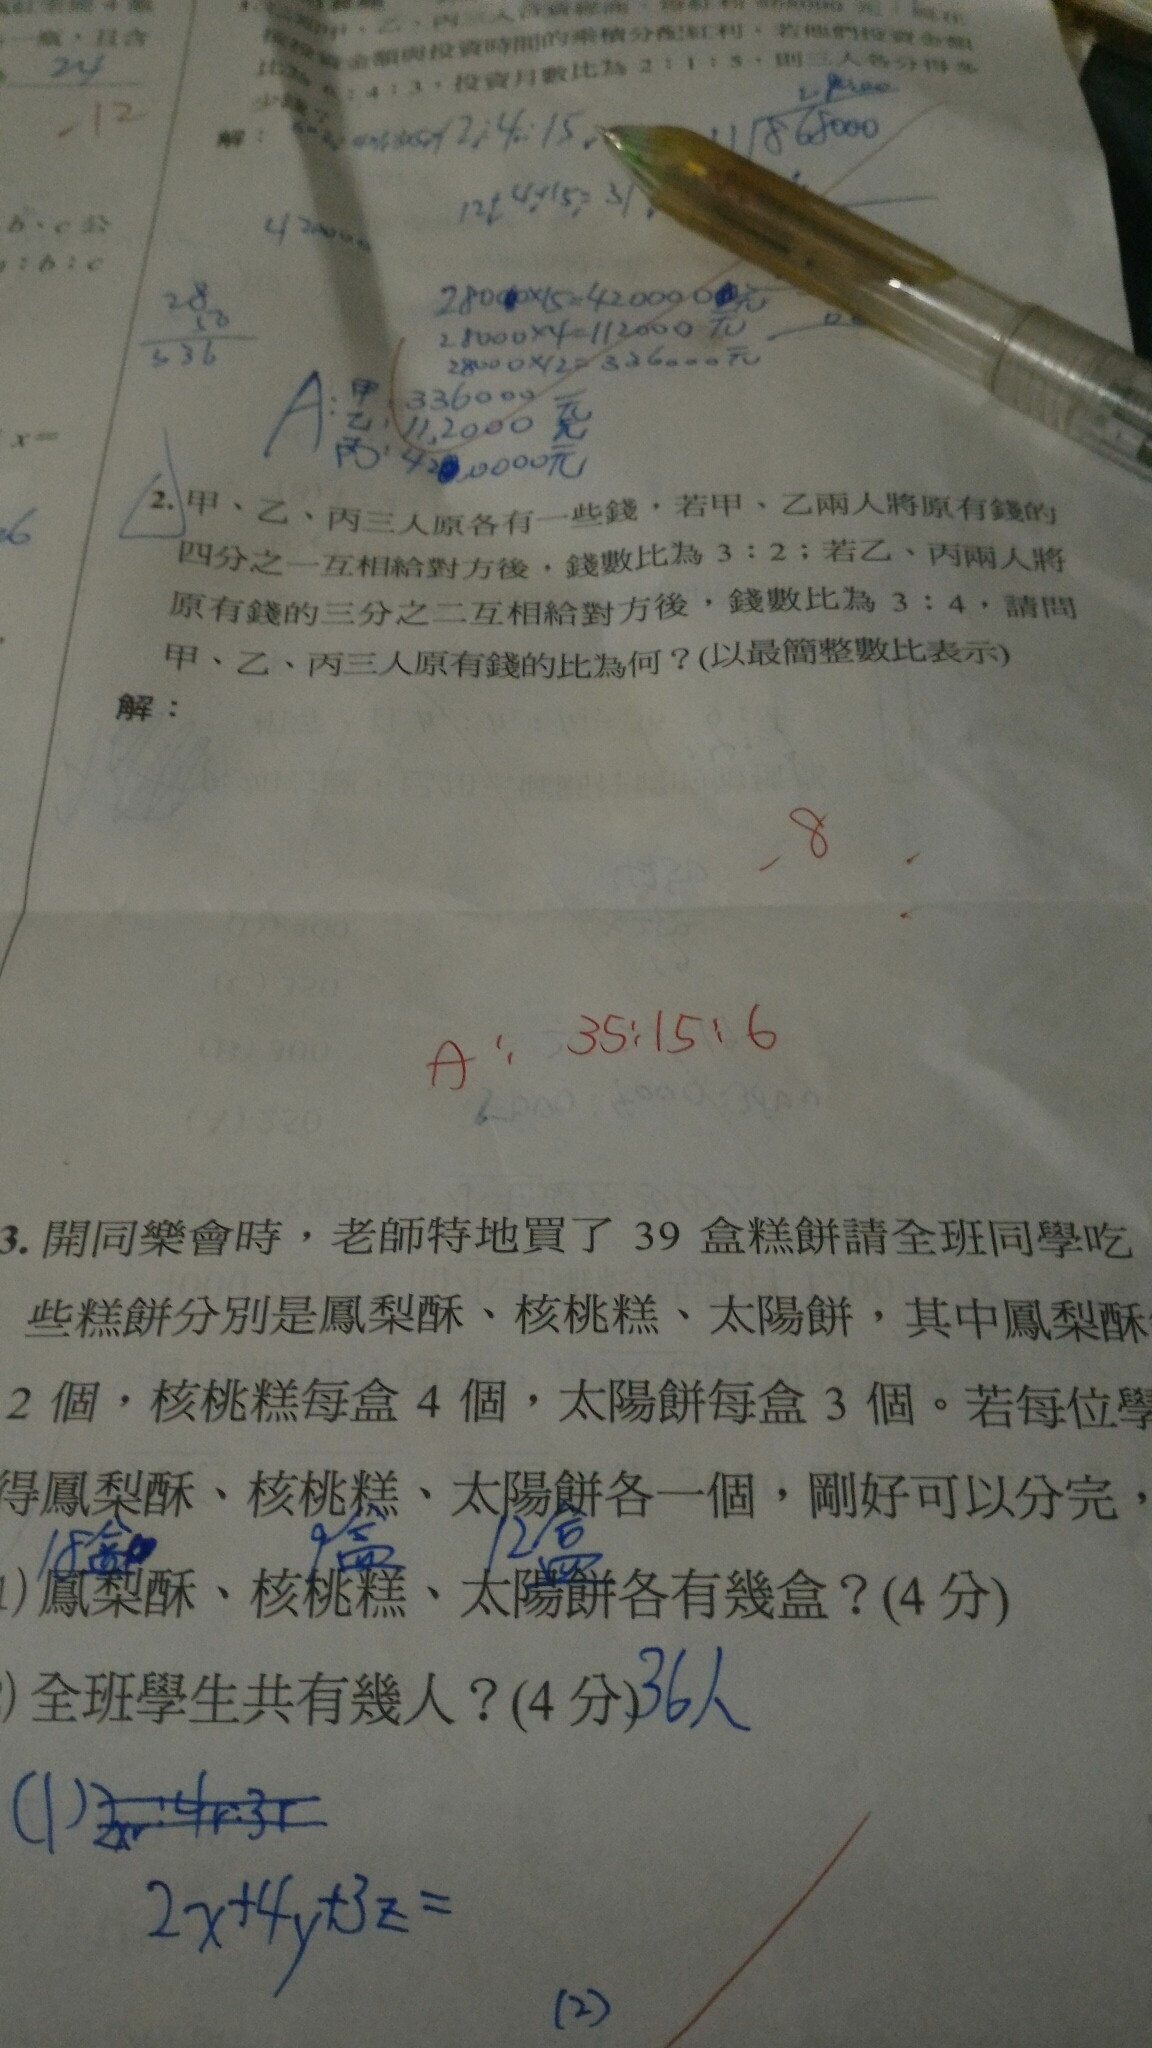 一瓶，且含
24
-12
b、c 公
a：b：c
x＝
按投資金額與投資時間的乘積分配紅利，若他們投資金額
比為 6：4：3，投資月數比為 2：1：5，則三人各分得多
少錢？
解：
12:4:15
868000
12+4+15=31
420000
28
336
28000×15=420000元
28000×4=112000元
28000×12=336000元
A:甲:336000元
乙:112000元
丙:420000元
2. 甲、乙、丙三人原各有一些錢，若甲、乙兩人將原有錢的
四分之一互相給對方後，錢數比為 3：2；若乙、丙兩人將
原有錢的三分之二互相給對方後，錢數比為 3：4，請問
甲、乙、丙三人原有錢的比為何？(以最簡整數比表示)
解：
-8
A: 35:15:6
3. 開同樂會時，老師特地買了 39 盒糕餅請全班同學吃
些糕餅分別是鳳梨酥、核桃糕、太陽餅，其中鳳梨酥
2 個，核桃糕每盒 4 個，太陽餅每盒 3 個。若每位學
得鳳梨酥、核桃糕、太陽餅各一個，剛好可以分完，
18盒 9盒 12盒
) 鳳梨酥、核桃糕、太陽餅各有幾盒？(4 分)
) 全班學生共有幾人？(4 分) 36人
(1)
2x+4y+3z=
(2)